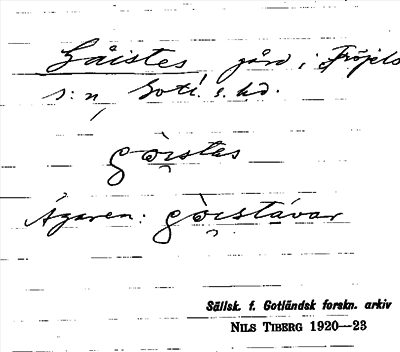 Gåistes, gård i Fröjels
s:n, Gotl. s. hd.
gòi̯stes
Ägaren: gòi̯stāvar
Sällsk. f. Gotländsk forskn. arkiv
NILS TIBERG 1920—23